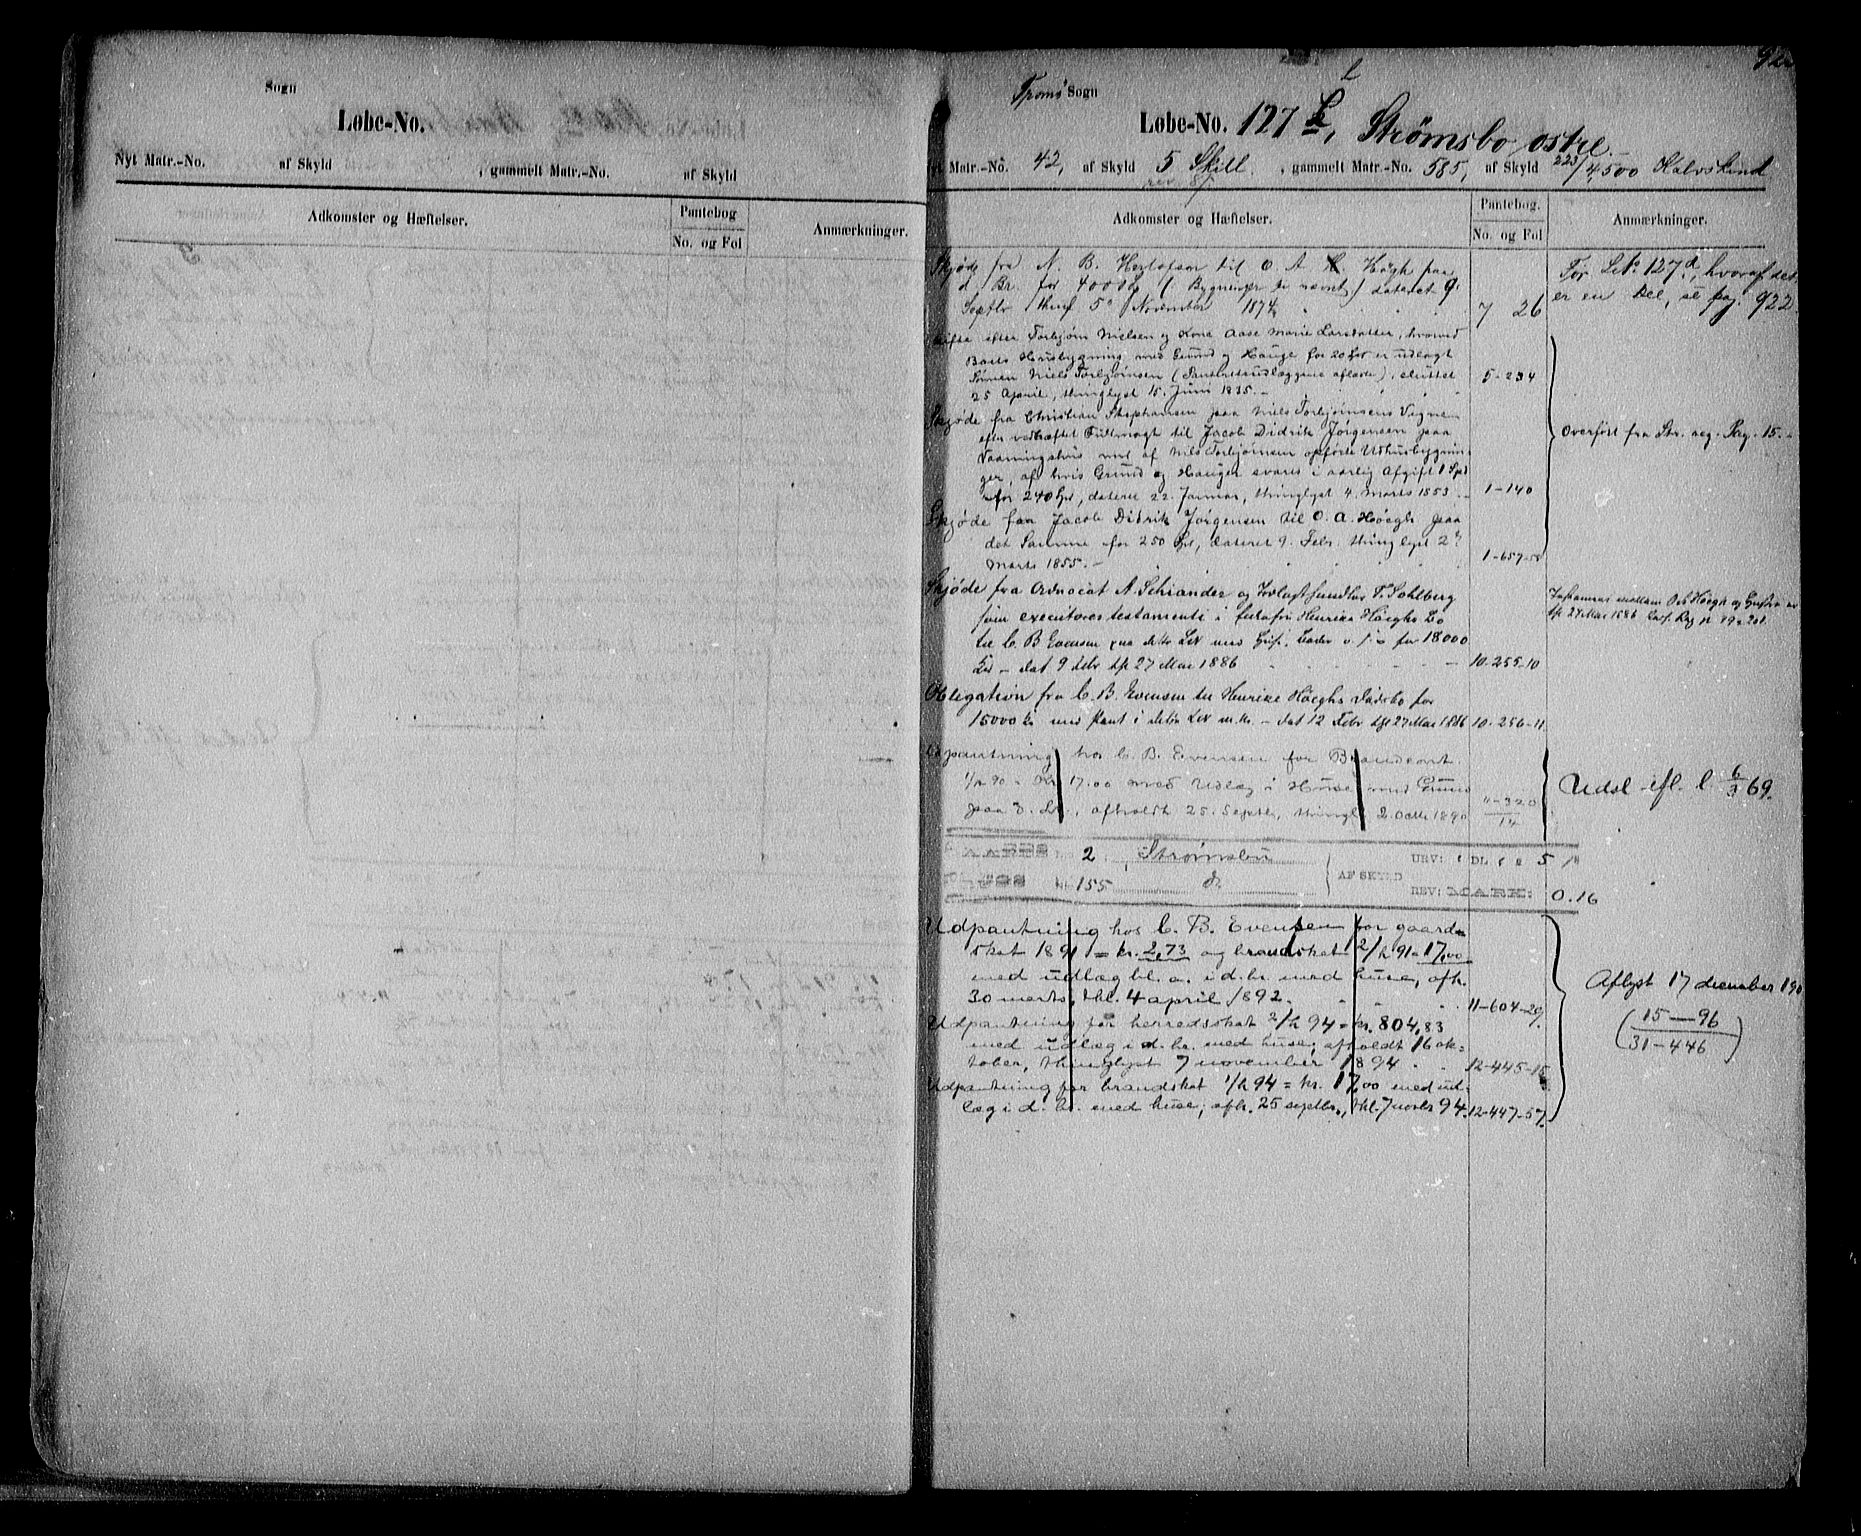 Sogn
Løbe-No.
Nyt Matr.-No. af Skyld , gammelt Matr.-No. af Skyld
Adkomster og Hæftelser. Pantebog No. og Fol Anmærkninger.
92
Tromø Sogn
Løbe-No. 127 L, Strømsbo østre.
Matr.-No. 42, af Skyld 5 Skill. , gammelt Matr.-No. 585, af Skyld 223/4500 Kalvskind
Adkomster og Hæftelser. Pantebog. No. og Fol Anmærkninger.
Skjøde fra N. B. Herlofson til O A H. Høegh paa
d Br. for 4000 (Bygninger nævnt) dateret 9.
Septbr thinl 5 November 1874 7 26
For Lb. 127 d, hvoraf det
er en Del, se pag. 922.
Skifte efter Torbjørn Nielsen og Kone Aase Marie Larsdatter, hvorved
Boets Huusbygning med Grund og Hauge for 20 Spd er udlagt
Sønnen Niels Torbjørnsen (Panteretsudlæggene aflæste), sluttet
25 April, thinglyst 15. Juni 1835. 5-234
Skjøde fra Christian Stephansen paa Niels Torbjørnsens Vegne
efter vedhæftet Fuldmagt til Jacob Didrik Jørgensen paa
Vaaningshus med af Niels Torbjørnsen opførte Udhusbygnin-
ger, af hvis Grund og Hauger svares i aarlig Afgift 1 Spd
for 240 Spd, dateret 22. Januar, thinglyst 4. Marts 1853 1-140
Overført fra Str. reg. Pag. 15.
Skjøde fra Jacob Didrik Jørgensen til O. A. Høegh paa
det Samme for 250 Spd, dateret 9. Febr. thinglyst 2
Marts 1855. 1-657-58
Skjøde fra Advocat A. Schrander og T. Sohlberg
som executores testamenti i Henrike Høeghs Bo
til C. B. Evensen paa dette Lbr med Huse, for 18000
Kr - dat 9 febr tgl 27 Mai 1886 10-255-10
Obligation fra C. B. Evensen til Henrike Høeghs Dødsbo for
15000 kr med Pant i dette Lbr m.m. - dat 12 Febr tgl 27 Mai 1886 10-256-11
Udpantning hos C. B. Evensen for Brandcont.
1/h 90 - Kr 17.00 med Udlæg i Huse med Grund
paa d. Lbr, afholdt 25. Septbr, thingl 2. Octbr 1890 11-320/14
Udsl. efl. l. 6/3 69.
2 Strømsbu URV: DL 5
155 d AF SKYLD REV: MARK: 0.16
Udpantning hos C. B. Evensen for gaards-
skat 1891 = kr. 2,73 og brandskat 2/h 91 = 17,00
med udlæg bl. a. i d. br. med huse, afh.
30 marts, thl. 4 april 1892. 11-604-29.
Udpantning for herredsskat 2/h 94 = kr. 804,83
med udlæg i d. br. med huse; afholdt 16 ok-
tober, thinglyst 7 november 1894 12-445-15
Udpantning for brandskat 1/h 94 = kr. 17,00 med ud-
læg i d. br. med huse; afh. 25 septbr., thl. 7 novbr 94. 12-447-57.
Aflyst 17 december 190
(15-96
31-446)